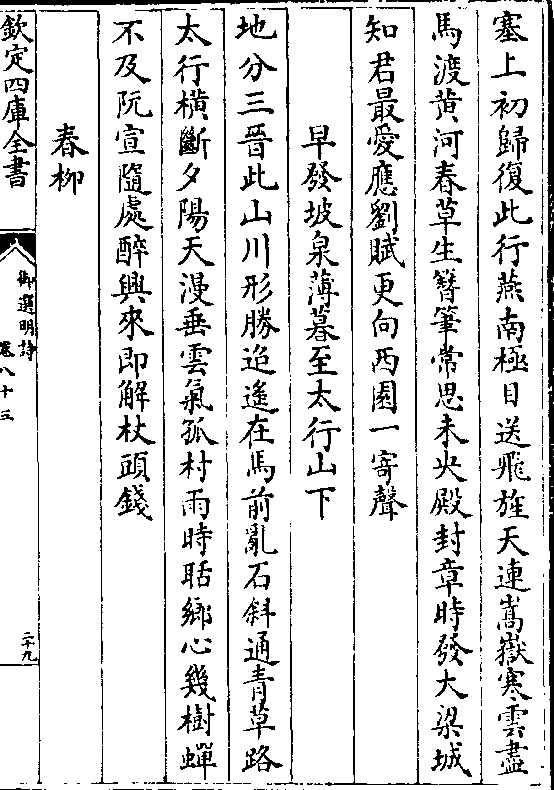 塞上初歸復此行燕南極目送飛旌天連嵩嶽寒雲盡
馬渡黃河春草生簪筆常思未央殿封章時發大梁城
知君最愛應劉賦更向西園一寄聲
早發坡泉薄暮至太行山下
地分三晉此山川形勝迢遙在馬前亂石斜通青草路
太行橫斷夕陽天漫垂雲氣孤村雨時聒鄉心幾樹蟬
不及阮宣隨處醉興來即解杖頭錢
春柳
欽定四庫全書
御選明詩
卷八十三
二十九